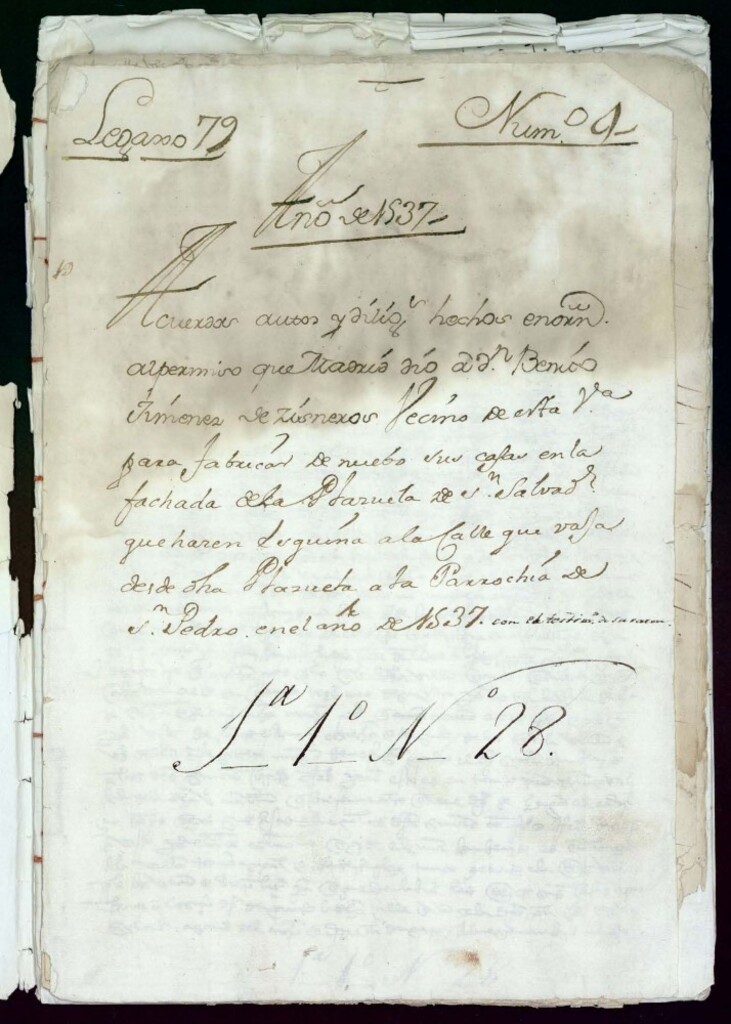 Legaxo 79
Num.º 4
Año de 1537
Acuerdos autos y dilig.s hechos en orñ.
al permiso que Madrid dio a d.n Benito
Jimenez de Zisneros Vecino de esta V.a
para fabricar de nuebo sus casas en la
fachada de la Plazuela de s.n Salvad.r
que hazen esquina a la Calle que vaja
desde dha Plazuela a la Parrochia de
s.n Pedro en el año de 1537. con el testim.o de su
S.a 1.º N.º 28.